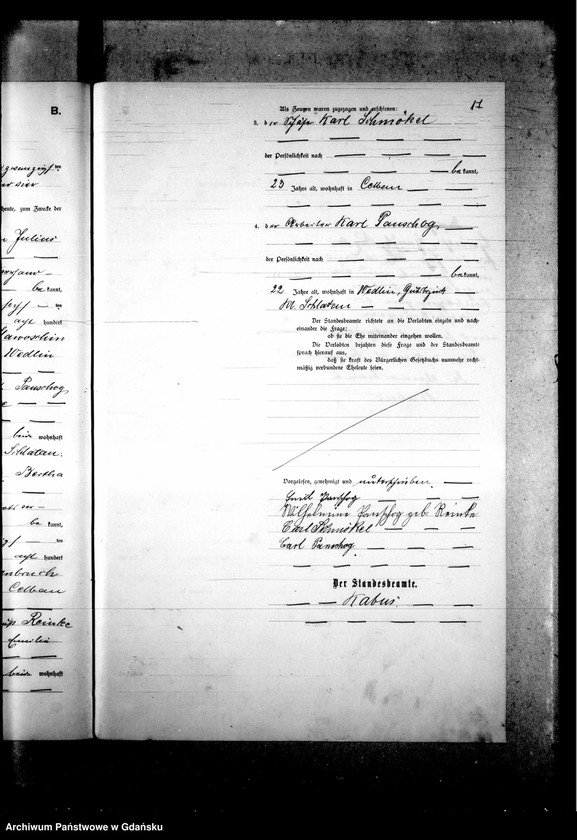 B.
ten
heute, zum Zwecke der
Julius
be kannt,
ten
acht hundert
Wedlin
Panschog
beide wohnhaft
Schlatau.
Bertha
be kannt,
ten
acht hundert
Celbau
Reinke
Emilie
beide wohnhaft
11
Als Zeugen waren zugezogen und erschienen:
3. der Karl Schmökel
der Persönlichkeit nach
be kannt,
23 Jahre alt, wohnhaft in Celbau
4. der Arbeiter Karl Panschog
der Persönlichkeit nach
be kannt,
22 Jahre alt, wohnhaft in Wedlin, Gutsbezirk
Kl. Schlatau
Der Standesbeamte richtete an die Verlobten einzeln und nach-
einander die Frage:
ob sie die Ehe miteinander eingehen wollen.
Die Verlobten bejahten diese Frage und der Standesbeamte
sprach hierauf aus,
daß sie kraft des Bürgerlichen Gesetzbuchs nunmehr recht-
mäßig verbundene Eheleute seien.
Vorgelesen, genehmigt und unterschrieben.
Emil Panschog
Wilhelmine Panschog geb. Reinke
Carl Schmökel
Carl Panschog
Der Standesbeamte.
Kabus.
Archiwum Państwowe w Gdańsku